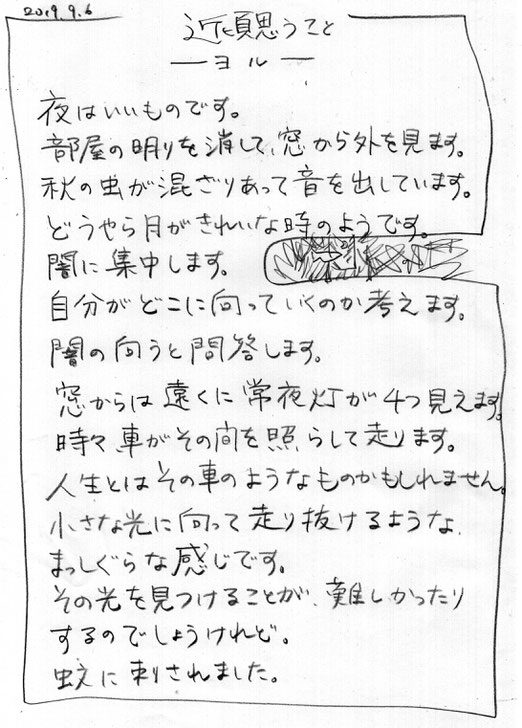 2019.9.6
近頃思うこと
ーヨルー
夜はいいものです。
部屋の明りを消して、窓から外を見ます。
秋の虫が混ざりあって音を出しています。
どうやら月がきれいな時のようです。
闇に集中します。
自分がどこに向っていくのか考えます。
闇の向うと問答します。
窓からは遠くに常夜灯が4つ見えます。
時々車がその間を照らして走ります。
人生とはその車のようなものかもしれません。
小さな光に向って走り抜けるような、
まっしぐらな感じです。
その光を見つけることが、難しかったり
するのでしょうけれど。
蚊に刺されました。